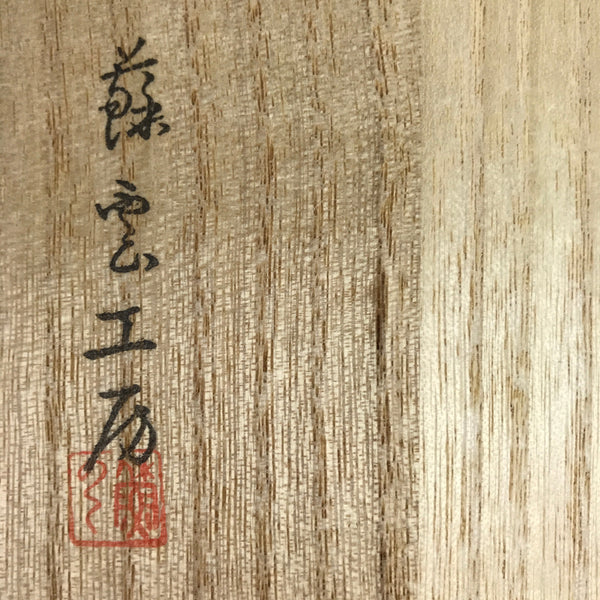 蘇雲工房